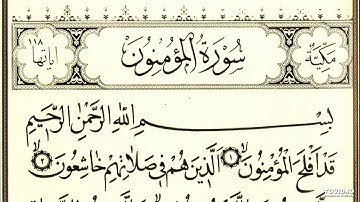 مكية
سورة المؤمنون
اياتها
١١٨
بسم الله الرحمن الرحيم
قد افلح المؤمنون ١ الذين هم في صلاتهم خاشعون ٢